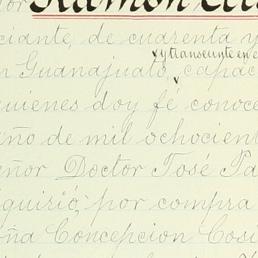 or Ramon
ciante, de cuarenta y
y transeunte en e
n Guanajuato, capac
quienes doy fé conoce
eño de mil ochocient
eñor Doctor José Pa
quirió, por compra
oña Concepcion Cosi